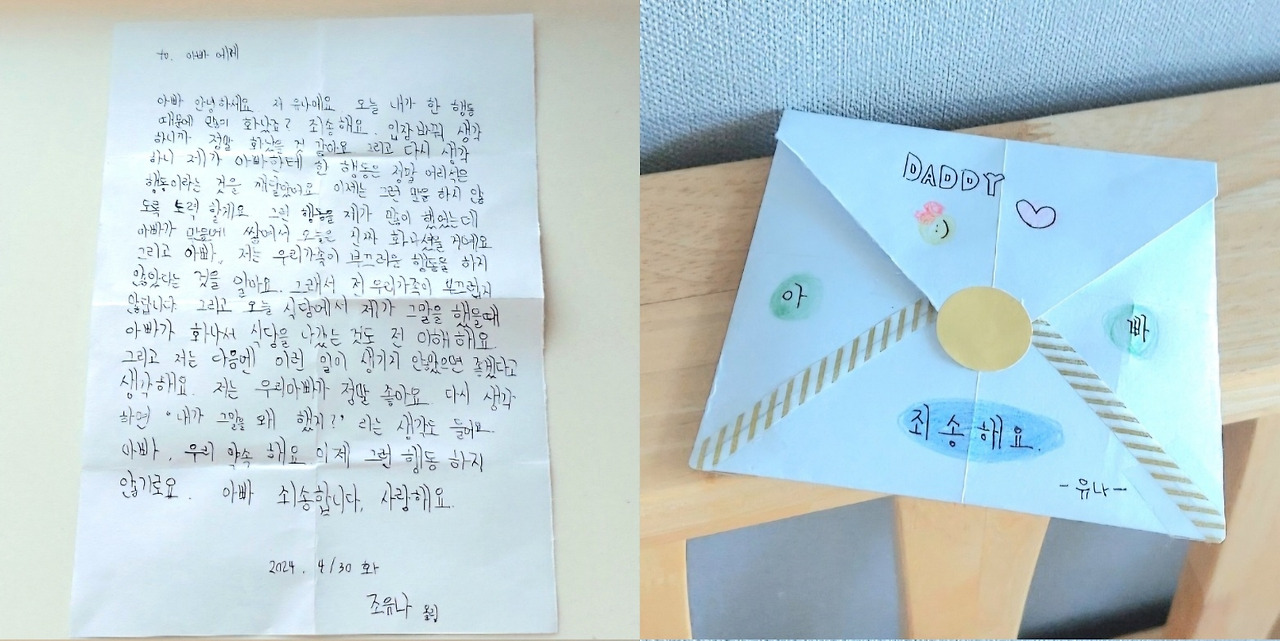 to. 아빠 에게
아빠 안녕하세요 저 유나에요 오늘 내가 한 행동
때문에 많이 화났죠? 죄송해요. 입장바꿔 생각
하니까 정말 화났을 것 같아요 그리고 다시 생각
하니 제가 아빠한테 한 행동은 정말 어리석은
행동이라는 것을 깨달았어요 이제는 그런 말을 하지 않
도록 노력 할게요 그런 행동을 제가 많이 했었는데
아빠가 마음에 쌓여서 오늘은 진짜 화나셨을 거에요
그리고 아빠, 저는 우리가족이 부끄러운 행동을 하지
않았다는 것을 알아요. 그래서 전 우리가족이 부끄럽지
않답니다. 그리고 오늘 식당에서 제가 그말을 했을때
아빠가 화나서 식당을 나갔는 것도 전 이해해요
그리고 저는 다음에 이런 일이 생기지 않았으면 좋겠다고
생각해요. 저는 우리아빠가 정말 좋아요 다시 생각
하면 '내가 그말을 왜 했지?' 라는 생각도 들어요
아빠, 우리 약속 해요 이제 그런 행동 하지
않기로요. 아빠 죄송합니다, 사랑해요.
2024. 4/30 화
조유나 올림
DADDY
아
빠
죄송해요.
-유나-